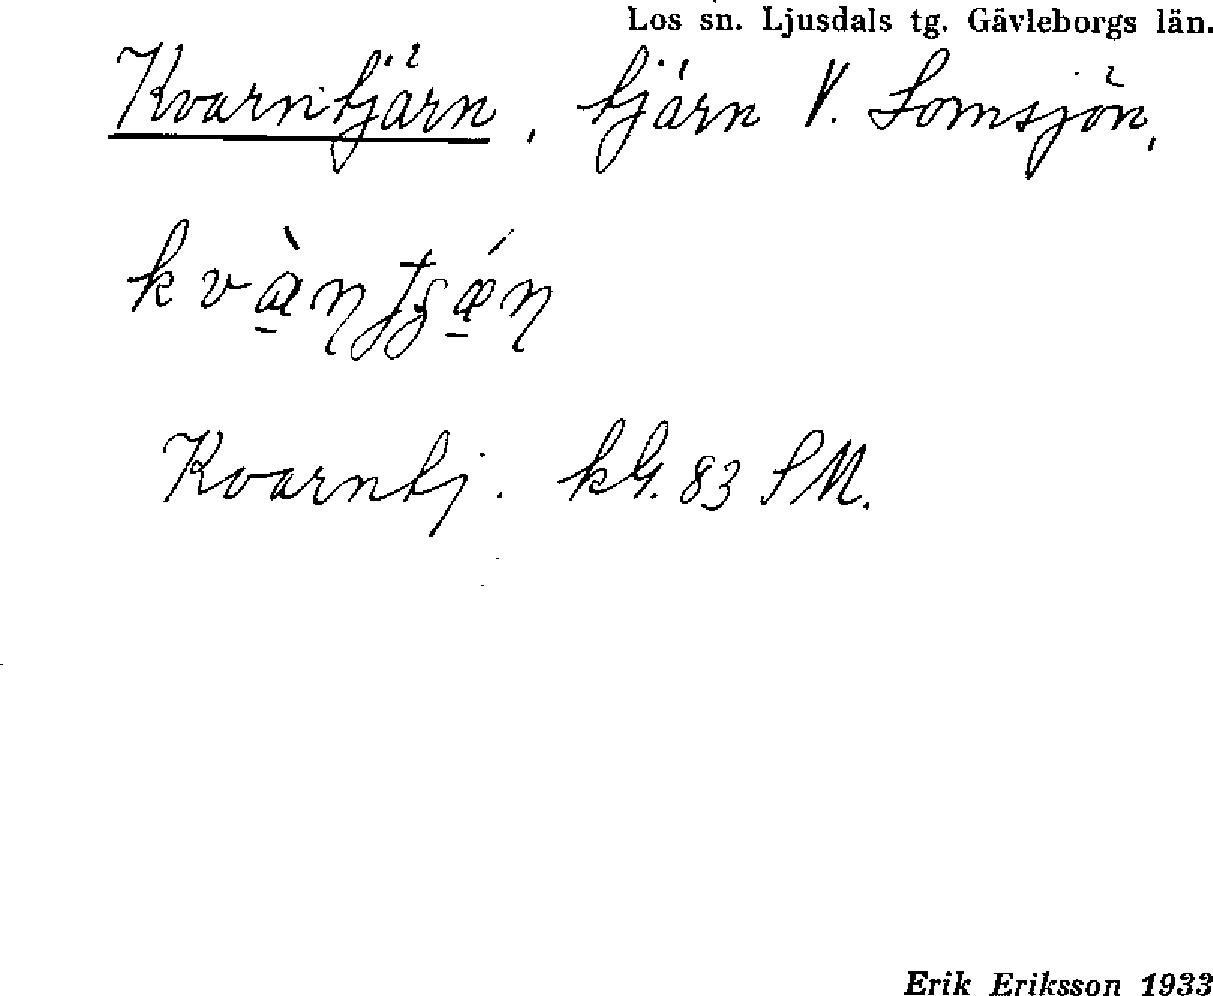 Los sn. Ljusdals tg. Gävleborgs län.
Kvarntjärn, tjärn V. Lomsjön,
Kvarntj. kG. 83 SM.
Erik Eriksson 1933